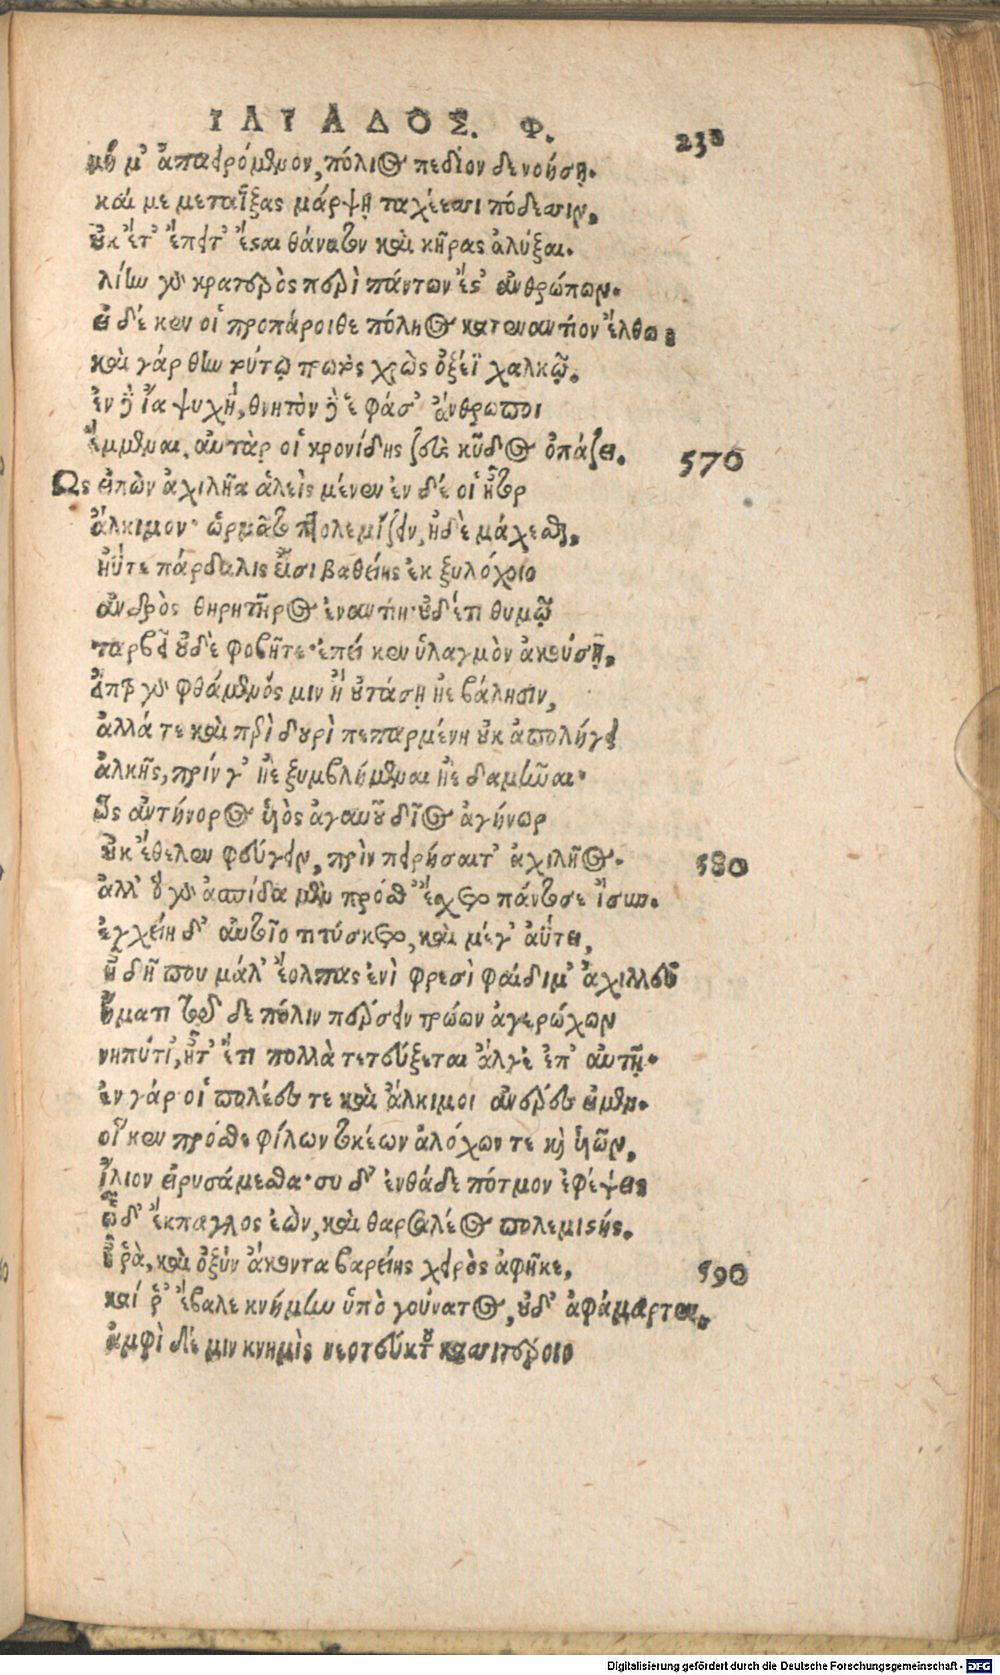 ΙΛΙΑΔΟΣ. Φ.
μή μ' ἀπαειρόμενον, πόλιος πεδίον δε νοήσῃ.
καί με μεταΐξας μάρψῃ ταχέεσσι πόδεσσιν,
οὐκ ἔτ' ἔπειτ' ἔσται θάνατον καὶ κῆρας ἀλύξαι.
λίην γὰρ κρατερὸς περὶ πάντων ἔστ' ἀνθρώπων.
εἰ δέ κεν οἱ προπάροιθε πόληος κατεναντίον ἔλθω,
καὶ γάρ θην τούτῳ τρωτὸς χρὼς ὀξέϊ χαλκῷ.
ἐν δὲ ἴα ψυχή, θνητὸν δέ ἑ φάσ' ἄνθρωποι
ἔμμεναι. αὐτάρ οἱ κρονίδης ζεὺς κῦδος ὀπάζει.
570
Ὣς εἰπὼν ἀχιλῆα ἀλεὶς μένεν ἐν δέ οἱ ἦτορ
ἄλκιμον· ὡρμᾶτο πτολεμίζειν, ἠδὲ μάχεσθαι,
ἠΰτε πάρδαλις εἶσι βαθείης ἐκ ξυλόχοιο
ἀνδρὸς θηρητῆρος ἐναντίη· οὐδέ τι θυμῷ
ταρβεῖ οὐδὲ φοβῆτε· ἐπεί κεν ὑλαγμὸν ἀκούσῃ,
εἴπερ γὰρ φθάμενός μιν ἢ οὐτάσῃ ἠὲ βάλησιν,
ἀλλά τε καὶ περὶ δουρὶ πεπαρμένη οὐκ ἀπολήγει
ἀλκῆς, πρίν γ' ἠὲ ξυμβλήμεναι ἠὲ δαμῆναι·
Ὣς ἀντήνορος υἱὸς ἀγαυοῦ δῖος ἀγήνωρ
οὐκ ἔθελεν φεύγειν, πρὶν πειρήσαιτ' ἀχιλῆος.
580
ἀλλ' ὅ γὰρ ἀσπίδα μὲν πρόσθ' ἔχετο πάντοσε ἴσην.
ἐγχείη δ' αὐτοῖο τιτύσκετο, καὶ μέγ' ἀΰτει,
ἦ δῆ που μάλ' ἔολπας ἐνὶ φρεσὶ φαίδιμ' ἀχιλλεῦ
ἤματι τῷδε πόλιν πέρσειν τρώων ἀγερώχων
νηπύτι', ἦτ' ἔτι πολλὰ τετεύξεται ἄλγε' ἐπ' αὐτῇ.
ἐν γάρ οἱ πολέες τε καὶ ἄλκιμοι ἀνέρες εἰμέν.
οἵ κεν πρόσθε φίλων τοκέων ἀλόχων τε καὶ υἱῶν,
ἴλιον εἰρυσάμεσθα· συ δ' ἐνθάδε πότμον ἐφέψεις
ὧδ' ἔκπαγλος ἐὼν, καὶ θαρσαλέος πολεμιστής.
Ἦ ῥὰ, καὶ ὀξὺν ἄκοντα βαρείης χειρὸς ἀφῆκε,
590
καί ῥ' ἔβαλε κνήμην ὑπὸ γούνατος, οὐδ' ἀφάμαρτεν,
ἀμφὶ δέ μιν κνημὶς νεοτεύκτου κασσιτέροιο